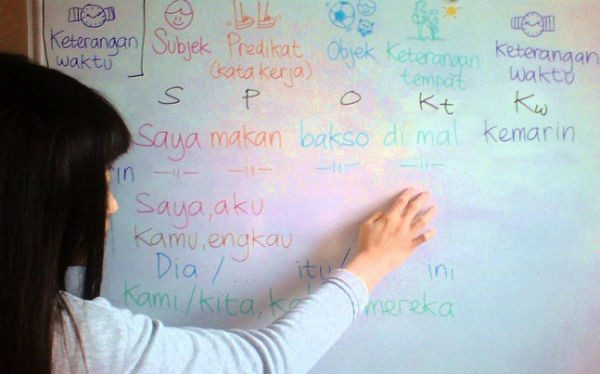 Keterangan waktu Subjek Predikat (kata kerja) Objek Keterangan tempat Keterangan waktu
S P O Kt Kw
Saya makan bakso di mal kemarin.
rin —〃— —〃— —〃— —〃—
Saya, aku
Kamu, engkau
Dia / ... itu/ ini
Kami/kita, mereka